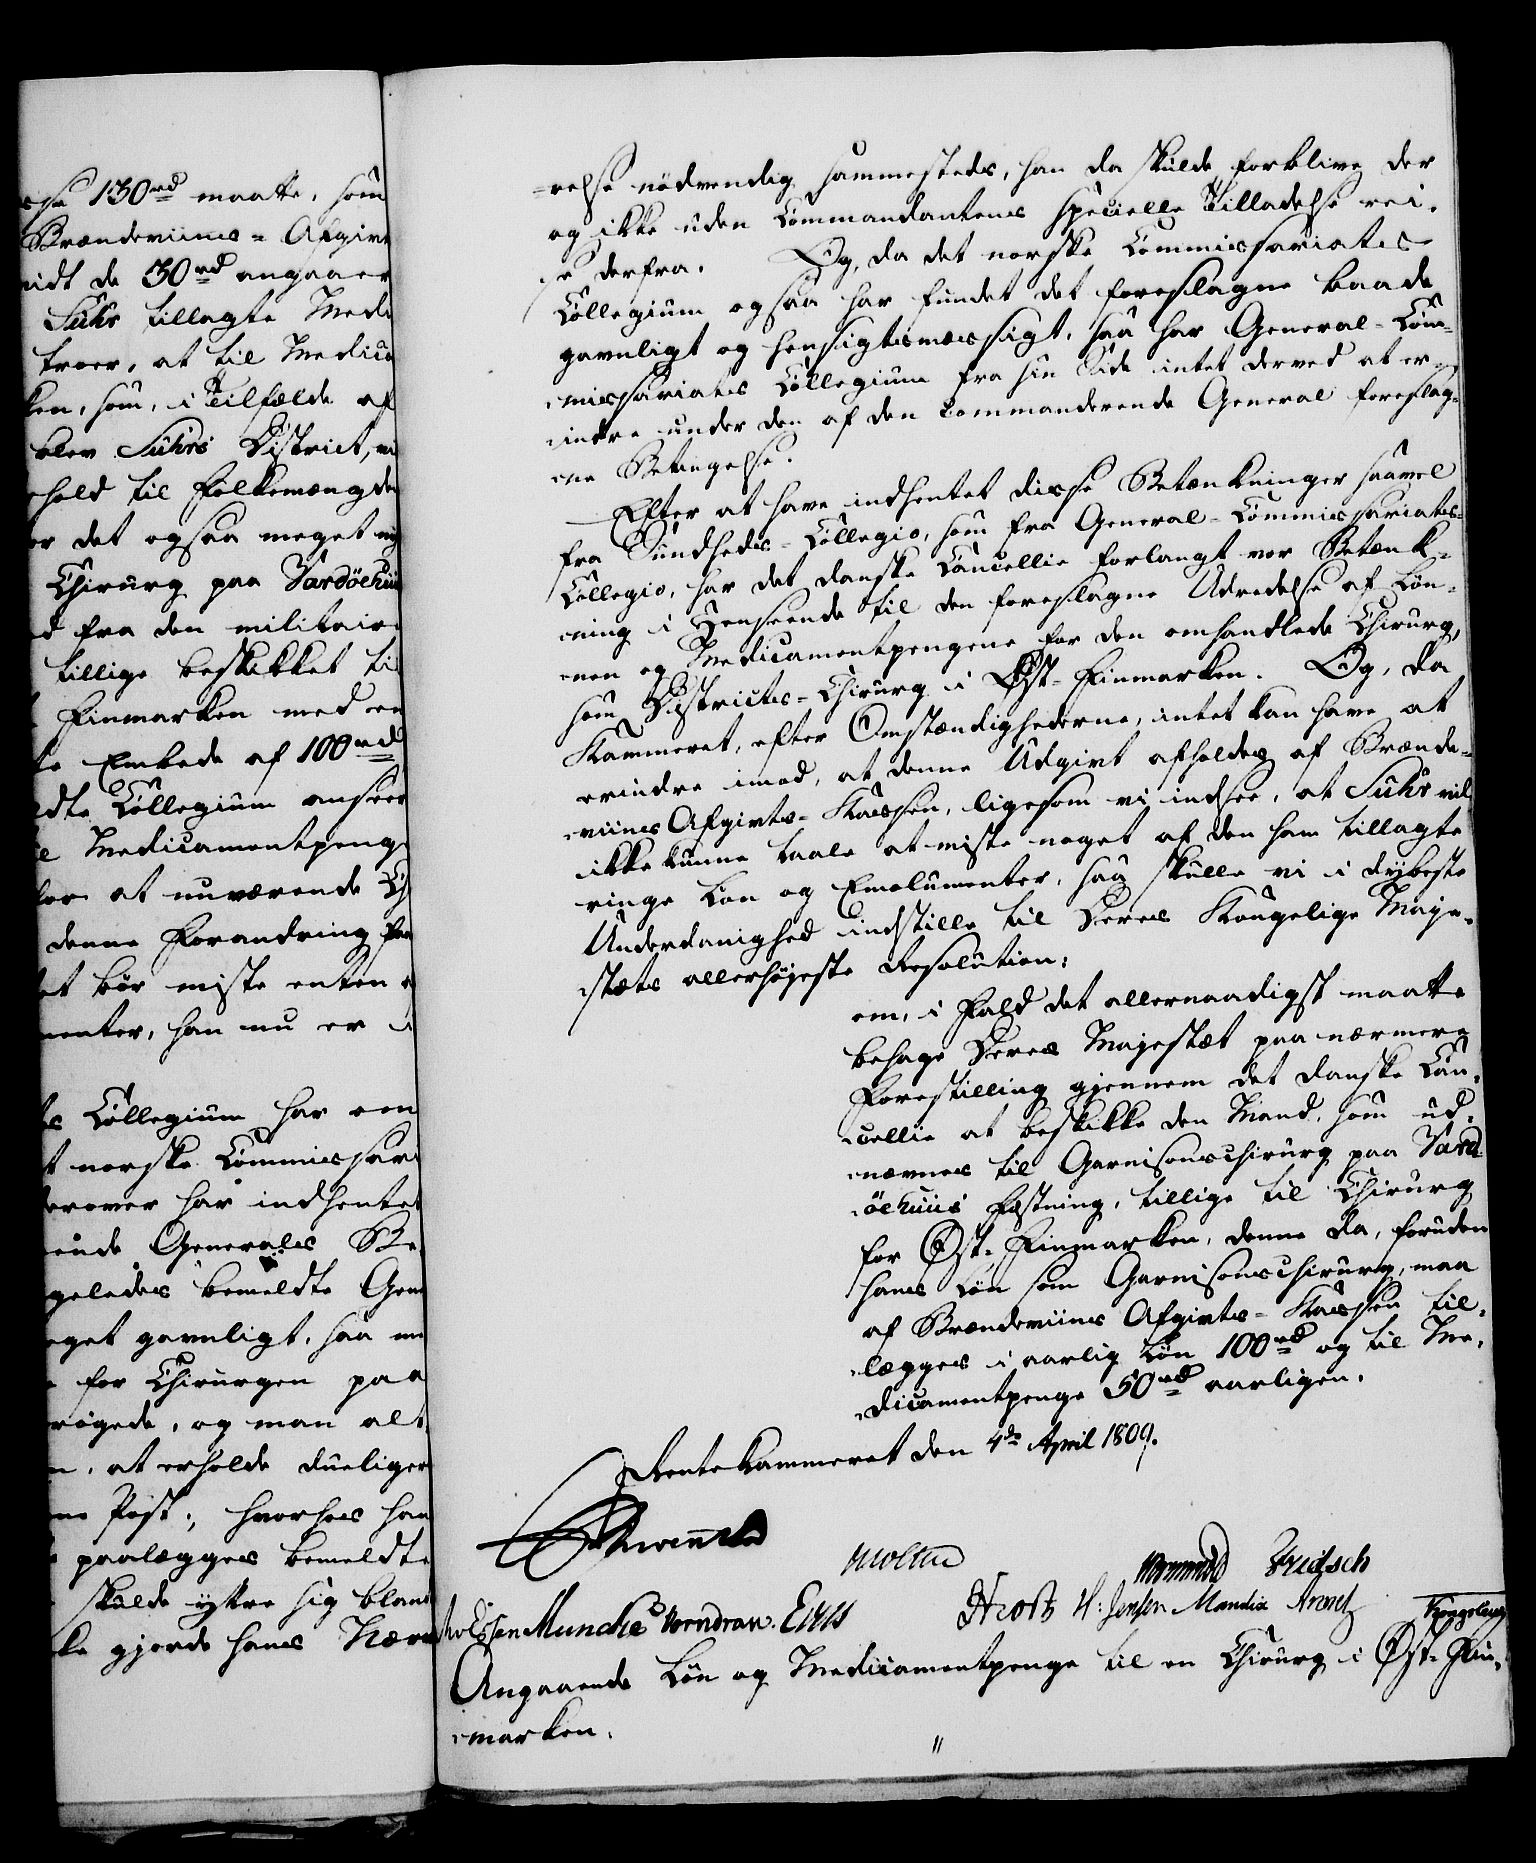 sse 130 rd maatte, som
Brændeviins-Afgivt
vidt de 30 rd angaaer
Suhr tillagte Medi
troer, at til Medica
ken, som, i Tilfælde af
blev Suhrs District, vi
hold til Folkemængden
er det ogsaa meget
Chirurg paa Vardöehuu
d fra den militair
tillige beskikket ti
Finmarken med en
te Embede af 100 rd
ldte Collegium anseer
Medicamentpenge
for at nuværende Ch
denne Forandring
et bör miste enten
menter, han nu er i
ts Collegium har om
t norske Commissari
derover har indhentet
ende Generals Be
geledes bemeldte Gen
eget gavnligt, saa
for Chirurgen paa
rögede, og man alt
n, at erholde dueligere
ne Post; hvorhos han
paalægges bemeldte
skulde yttre sig blandt
ke gjorde hans Nær
-relse nödvendig sammesteds, han da skulde forblive der
og ikke uden Commandantens specielle Tilladelse rei-
se derfra. Og, da det norske Commissariats
Collegium ogsaa har fundet det foreslagne baade
gavnligt og hensigtsmæssigt, saa har General-Com-
-missariats Collegium fra sin Side intet derved at er-
-indre under den af den commanderende General foreslag-
-ne Betingelse.
Efter at have indhentet disse Betænkninger saavel
fra Sundheds-Collegio, som fra General-Commissariats-
Collegio, har det danske Cancellie forlangt vor Betænk-
-ning i Henseende til den foreslagne Udredelse af Løn-
-nen og Medicamentpengene for den omhandlede Chirurg,
som Districts-Chirurg i Øst-Finmarken. Og, da
Kammeret, efter Omstændighederne, intet kan have at
erindre imod, at denne Udgivt afholdes af Brænde-
-viins Afgivts-Kassen, ligesom vi indsee, at Suhr vil
ikke kunne taale at miste noget af den ham tillagte
ringe Løn og Emolumenter, saa skulle vi i dybeste
Underdanighed indstille til Deres Kongelige Maje-
-stæts allerhöjeste Resolution:
om, i Fald det allernaadigst maatte
behage Deres Majestæt paa nærmere
Forestilling gjennem det danske Can-
-cellie at beskikke den Mand, som ud-
-nævnes til Garnisonschirurg paa Vard-
-öehuus Fæstning, tillige til Chirurg
for Øst-Finmarken, denne da, foruden
hans Løn som Garnisonschirurg, maa
af Brændeviins Afgivts-Kassen til-
-lægges i aarlig Løn 100 rd og til Me-
-dicamentpenge 50 rd aarligen.
Rentekammeret den 4de April 1809.
Moltke Wormskiold Fridsch
Munche Vorndran. Hrost H: Jensen Mandix Arentz
Angaaende Løn og Medicamentpenge til en Chirurg i Øst-Fin-
-marken.
"